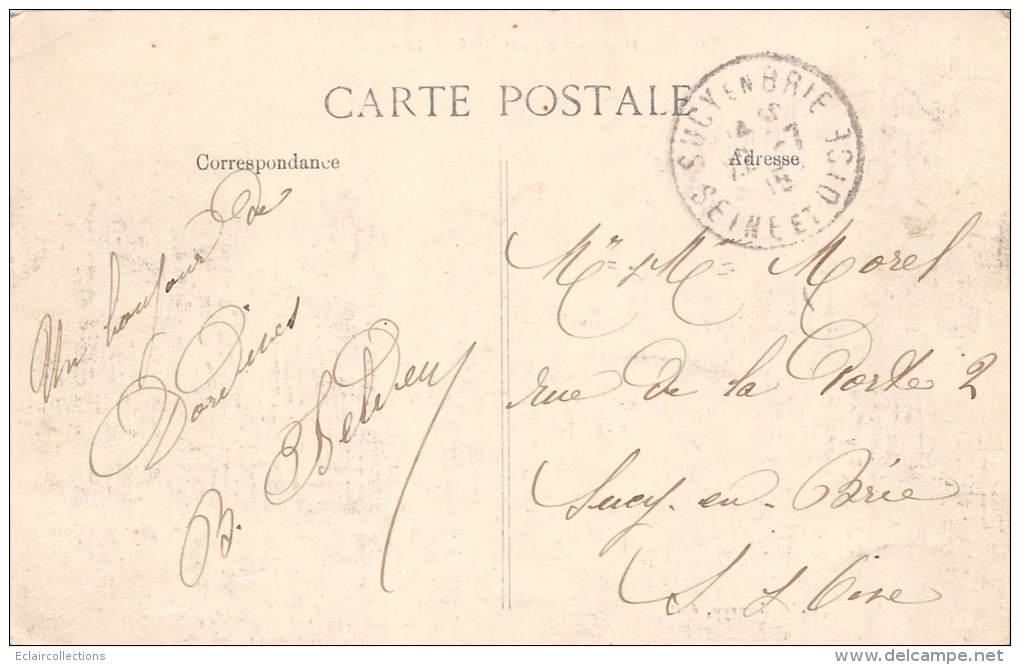 CARTE POSTALE
Correspondance
Adresse
SUCY EN BRIE
SEINE ET OISE
Un bonjour de
B.
Mr & Mme Morel
rue de la Porte 2
Sucy-en-Brie
S & Oise
Eclaircollections
delcampe.net